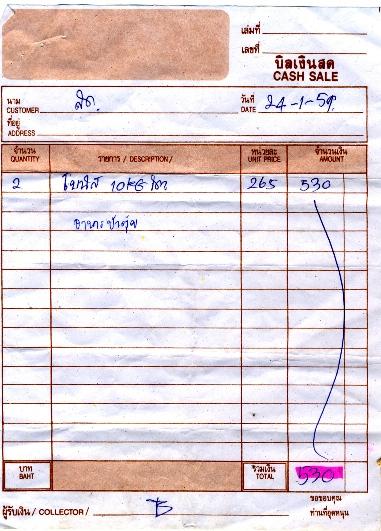 เล่มที่
เลขที่
บิลเงินสด
CASH SALE
นาม
CUSTOMER สด.
วันที่
DATE 24-1-59.
ที่อยู่
ADDRESS
จำนวน
QUANTITY
รายการ / DESCRIPTION/
หน่วยละ
UNIT PRICE
จำนวนเงิน
AMOUNT
2 10KG 265 530
อาหาร
บาท
BAHT
รวมเงิน
TOTAL
530
ผู้รับเงิน / COLLECTOR /
ขอขอบคุณ
ท่านที่อุดหนุน